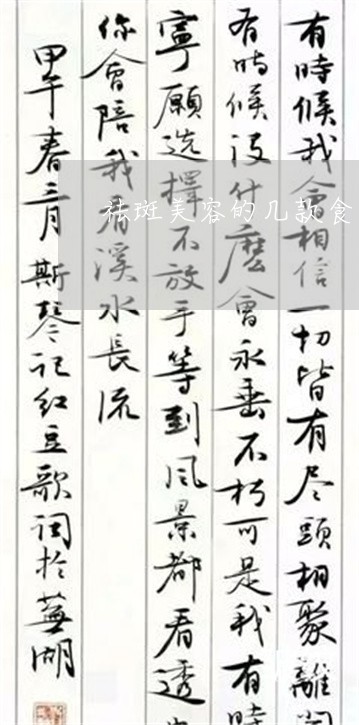 有時候我会相信一切皆有尽頭相聚離
有時候没什麽會永垂不朽可是我有時
寧願选擇不放手等到风景都看透
你會陪我看溪水長流
甲午春三月斯琴记红豆歌词於蕪湖
祛斑美容的几款食